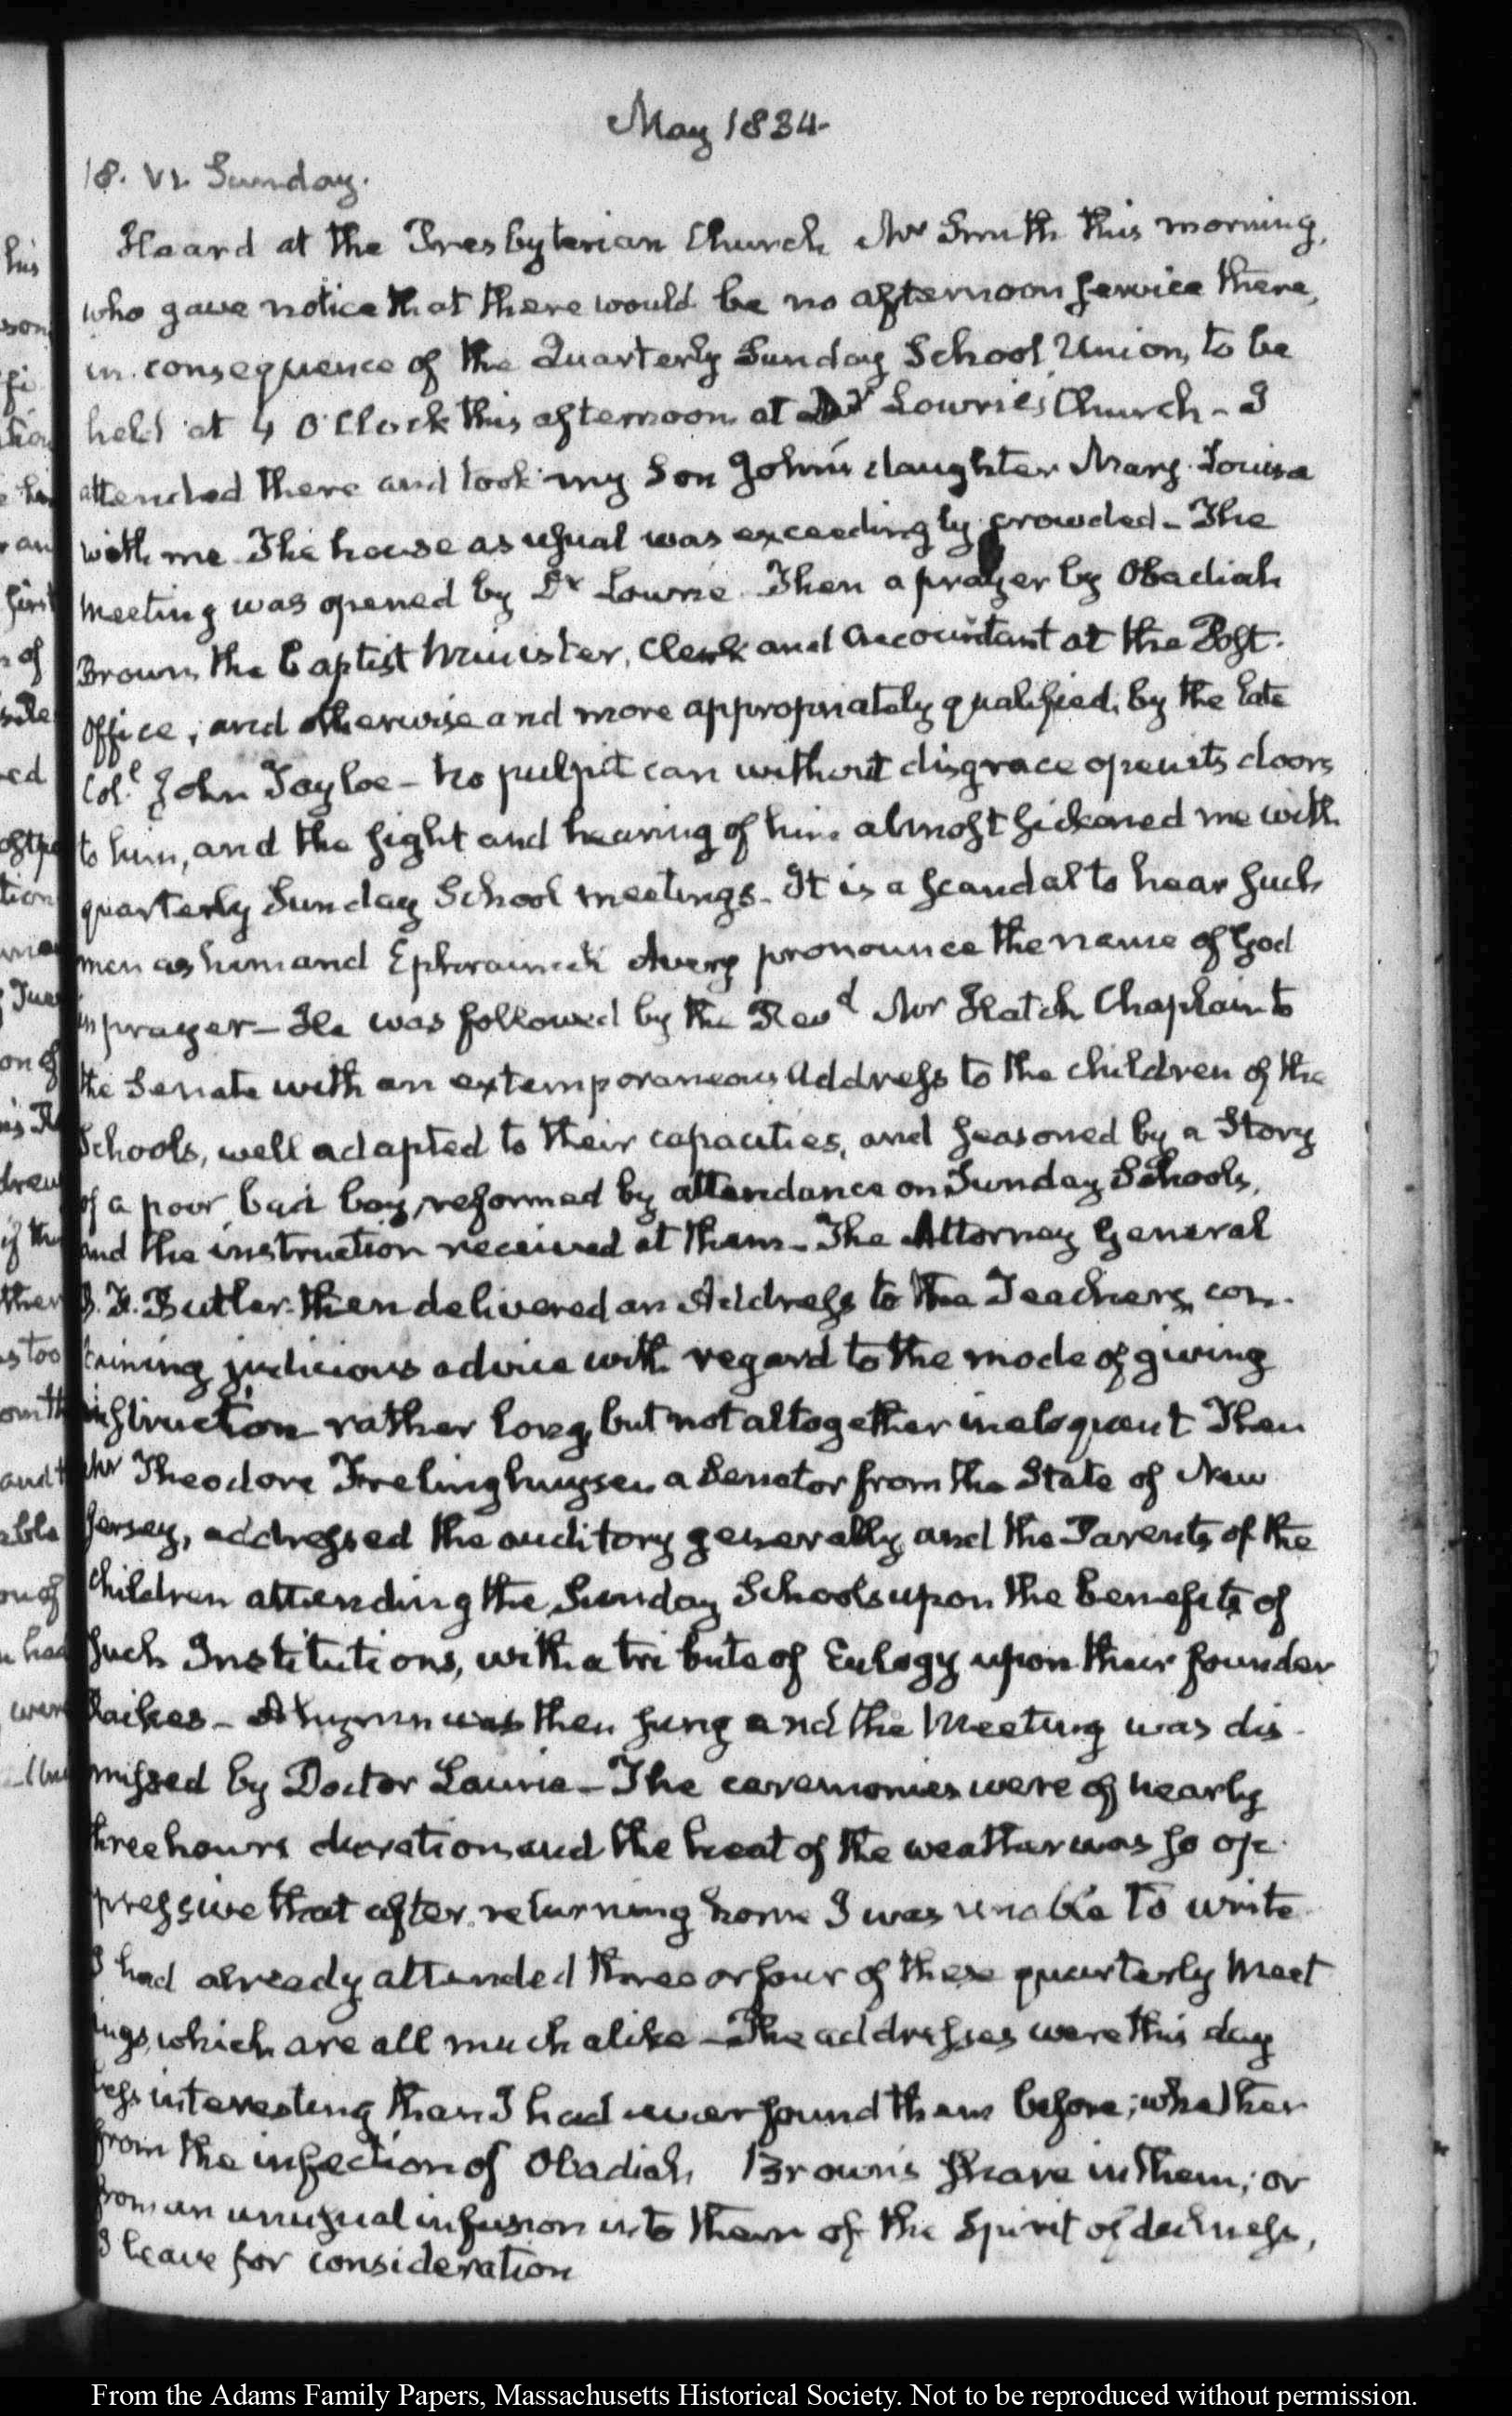 May 1834.
18. VI. Sunday.
Heard at the Presbyterian Church Mr Smith this morning,
who gave notice that there would be no afternoon service there,
in consequence of the Quarterly Sunday School Union, to be
held at 4 O'Clock this afternoon at Dr Lowrie's Church - I
attended there and took my Son John's daughter Mary Louisa
with me The house as usual was exceedingly crowded - The
Meeting was opened by Dr Lowrie Then a prayer by Obadiah
Brown, the Baptist Minister, Clerk and Accountant at the Post-
Office, and otherwise and more appropriately qualified, by the late
Col. John Tayloe - No pulpit can without disgrace open its doors
to him, and the sight and hearing of him almost sickened me with
quarterly Sunday School meetings. It is a scandal to hear such
men as him and Ephraim K Avery pronounce the name of God
in prayer - He was followed by the Revd Mr Hatch Chaplain to
the Senate with an extemporaneous Address to the children of the
Schools, well adapted to their capacities, and seasoned by a Story
of a poor bad boy, reformed by attendance on Sunday Schools,
and the instruction received at them - The Attorney General
B. F. Butler then delivered an Address to the Teachers, con-
taining judicious advice with regard to the mode of giving
instruction rather long, but not altogether ineloquent Then
Mr Theodore Frelinghuysen a Senator from the State of New
Jersey, addressed the auditory generally, and the Parents of the
children attending the Sunday Schools upon the benefits of
such Institutions, with a tribute of Eulogy upon their founder
Raikes - A hymn was then sung and the Meeting was dis-
missed by Doctor Laurie - The ceremonies were of nearly
three hours duration and the heat of the weather was so op-
pressive that after returning home I was unable to write
I had already attended three or four of these quarterly Meet
ings, which are all much alike - The addresses were this day
less interesting than I had ever found them before; whether
from the infection of Obadiah Brown's share in them; or
from an unusual infusion into them of the Spirit of dulness,
I leave for consideration
From the Adams Family Papers, Massachusetts Historical Society. Not to be reproduced without permission.